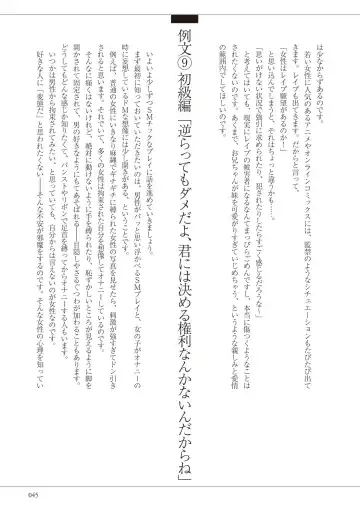 は少なからずあるのです。
若い女性に人気のあるアニメやオンラインコミックスには、監禁のようなシチュエーションもたびたび出て
きます。レイプものも出てきます。だからと言って、
「女性はレイプ願望があるのか！」
と思い込んでしまうと、それはちょっと違うかも……。
「思いがけない状況で強引に求められたり、犯されたりしたらすごく感じるだろうな〜」
と考えてはいても、現実にレイプの被害者になるなんてまっぴらごめんですし、本当に傷つくようなことは
されたくないのです。あくまで、お兄ちゃんが妹を可愛がりすぎていじめちゃう、というような親しみと愛情
の範囲内でしてほしいのです。
例文⑨ 初級編「逆らってもダメだよ、君には決める権利なんかないんだからね」
いよいよ少しずつSMチックなプレイに話を進めていきましょう。
まず最初に知っておいていただきたいのは、男性がパッと思い浮かべるSMプレイと、女の子がオナニーの
時に妄想しているドMな想像には少し開きがある、ということです。
例えば、普通の女性にいきなり麻縄でギチギチに縛られた女性の写真を見せたら、刺激が強すぎてドン引き
されると思います。それでいて、多くの女性は拘束された自分を想像してオナニーしているのです。
そんなに痛くはないけれど、絶対に動けないように手を縛られたり、恥ずかしいところが見えるように脚を
開かされて固定されて、男の好きなようにもてあそばれる――目隠しやさるぐつわが加わることもあります。
どうしてもどんな感じか知りたくて、パンストやリボンで足首を縛ってからオナニーする人もいます。
いつかは男性から拘束されてみたい、と思っていても、自分からは言えないのが女性なのです。
好きな人に「変態だ」と思われたくない――そんな不安が邪魔をするのです。そんな女性の心理を知ってい
045